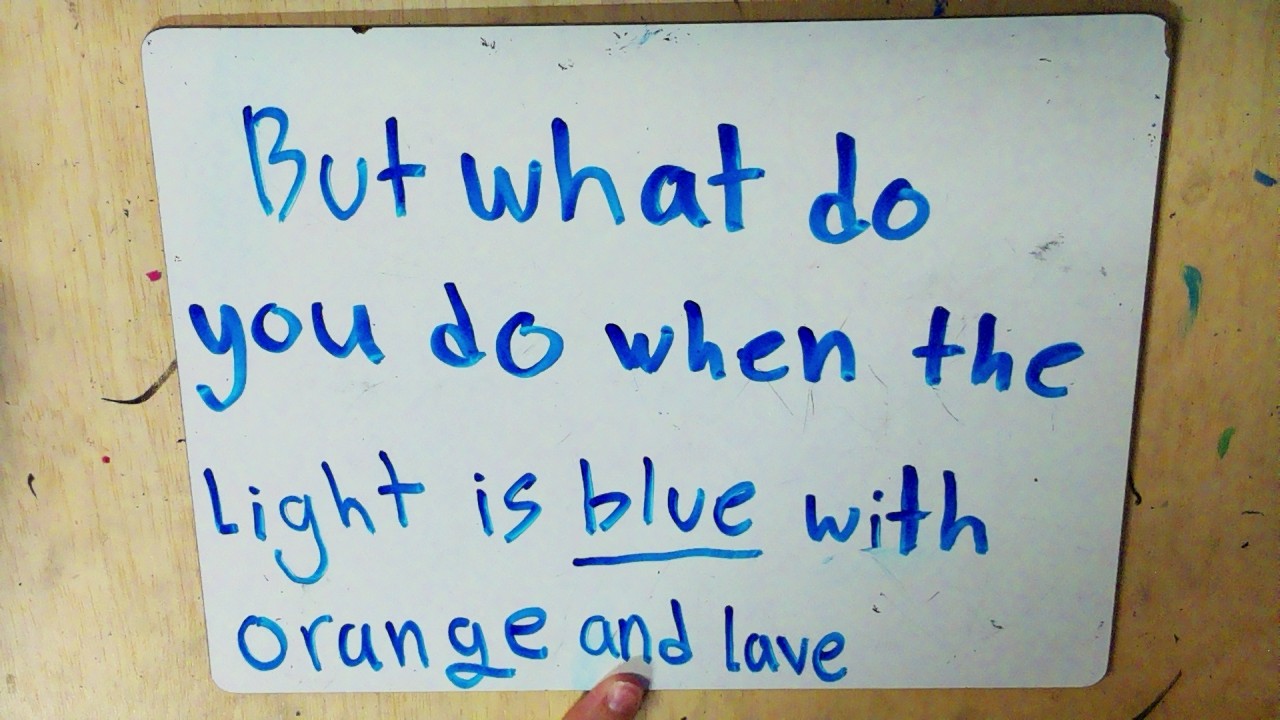 But what do
you do when the
Light is blue with
orange and lave